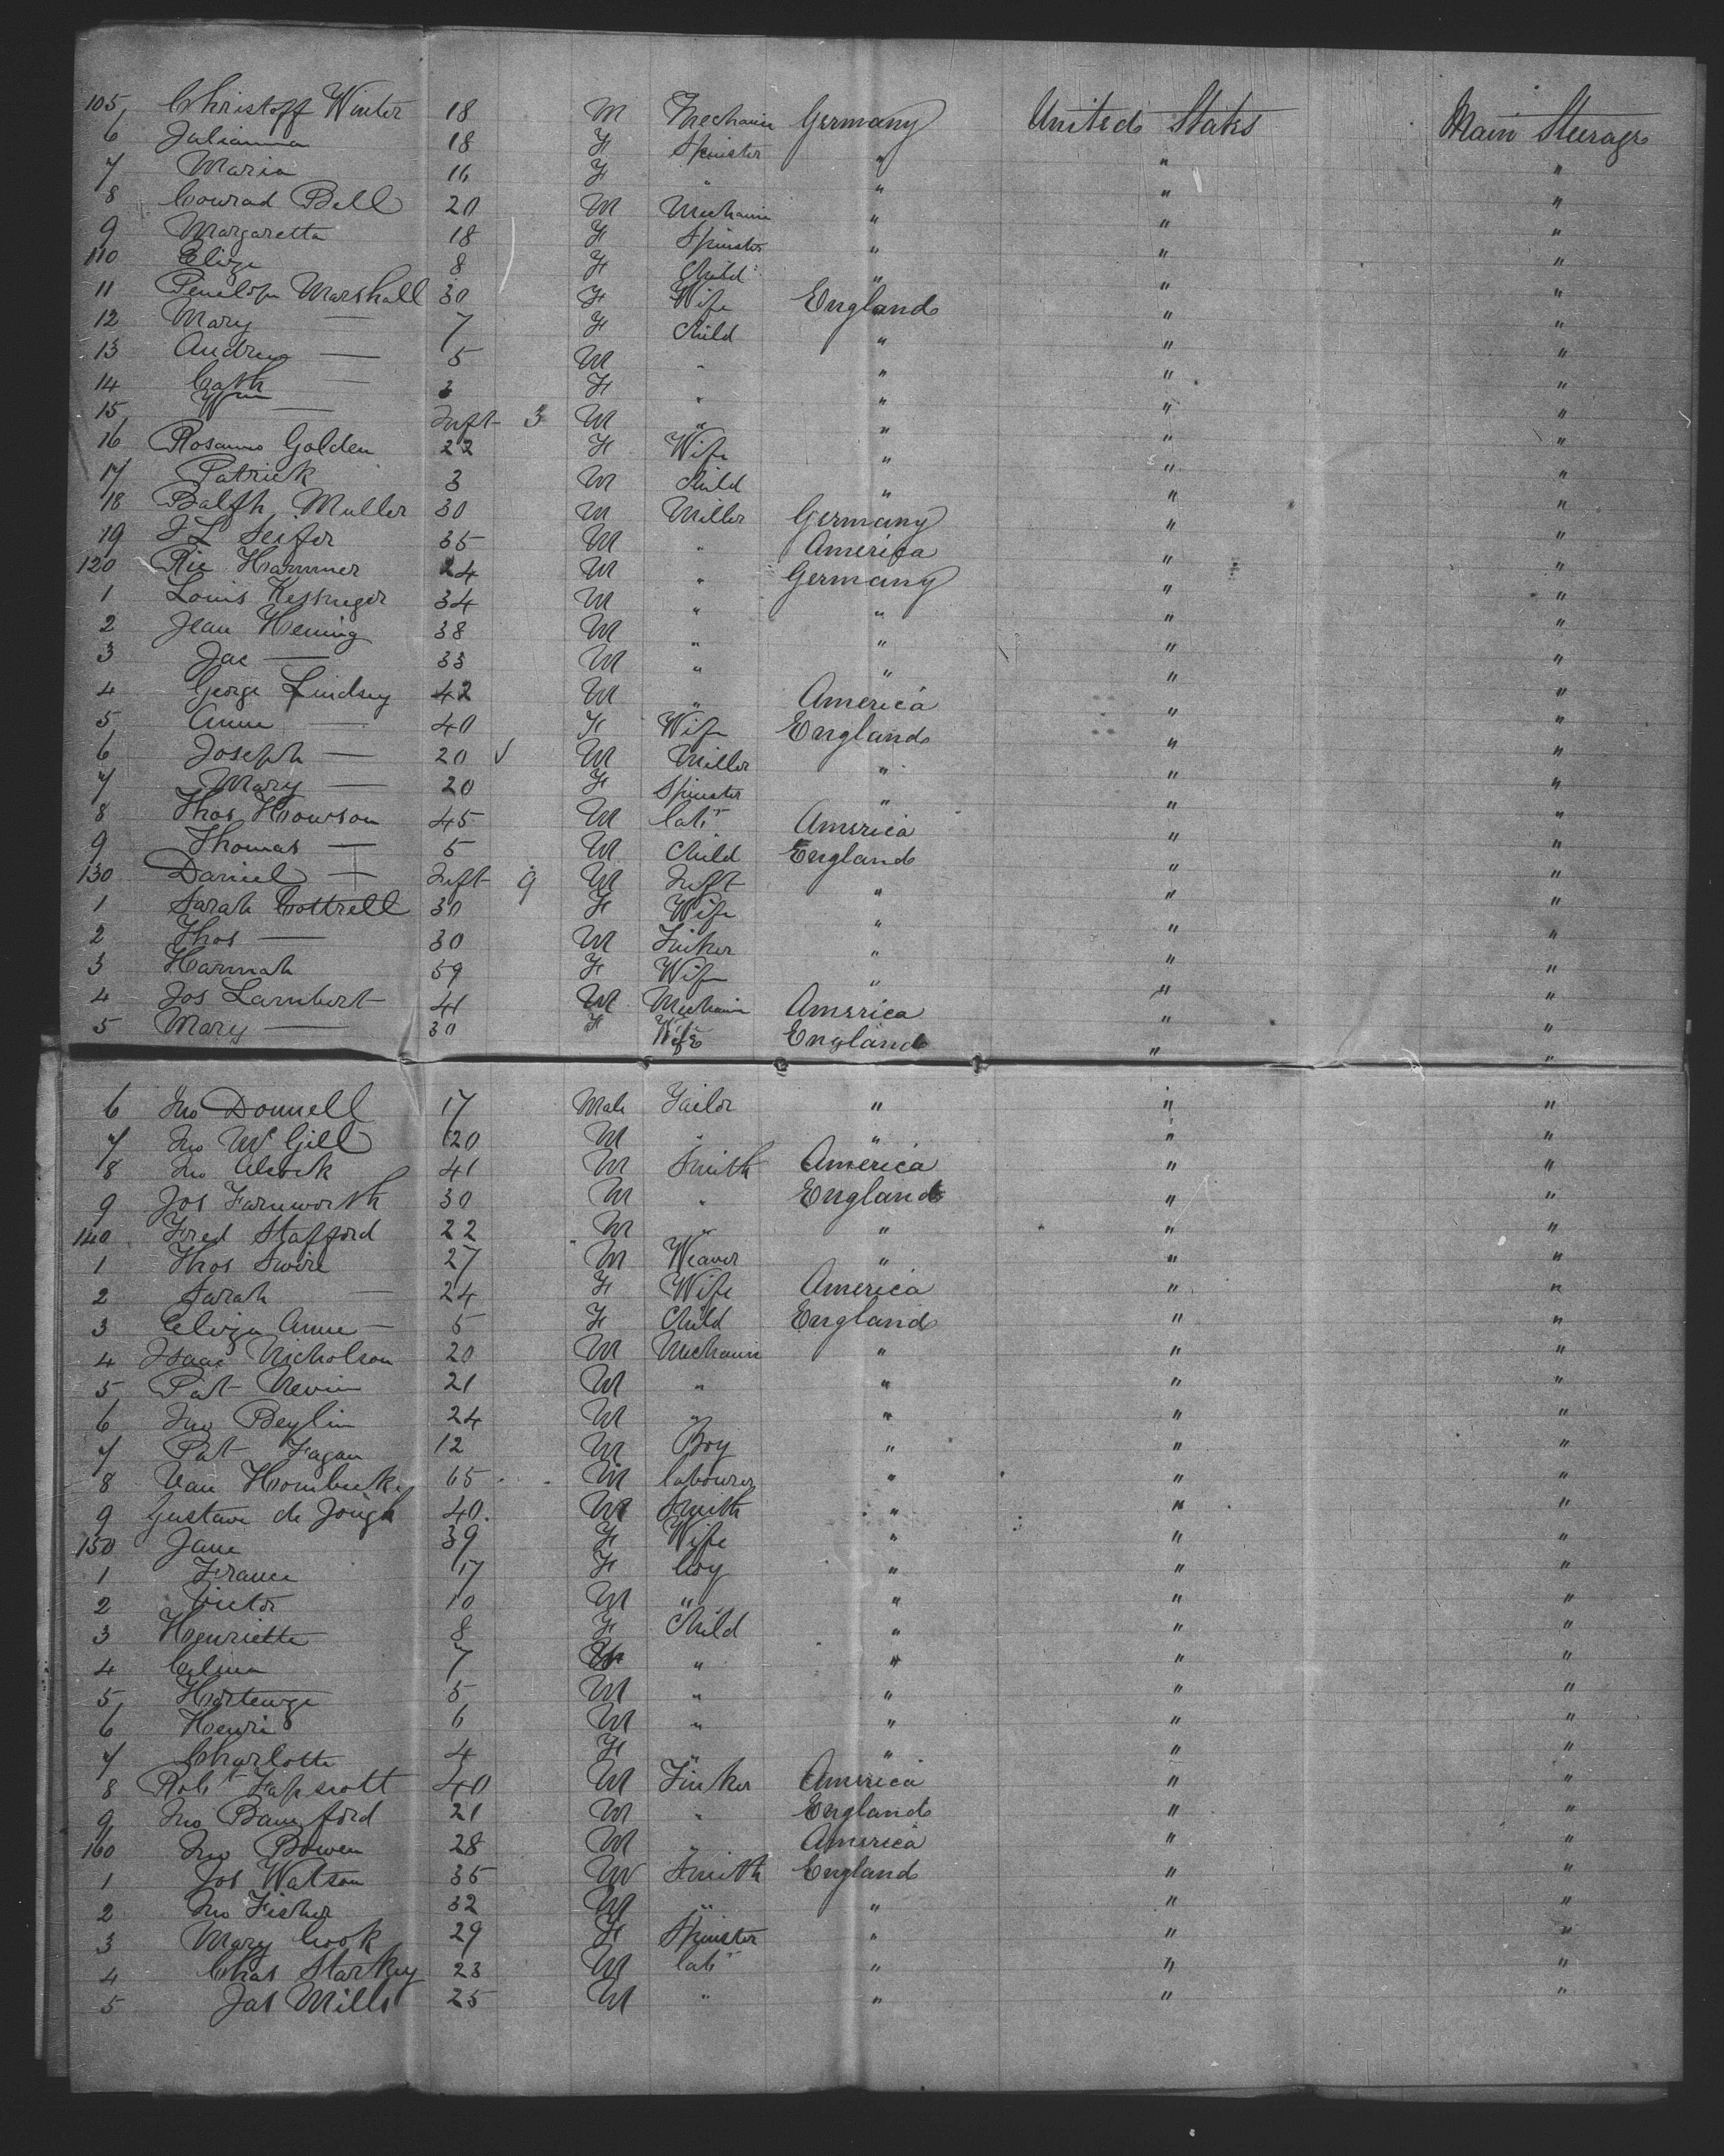 105 Christoff Winter 18 M Mechanic Germany United States Main Steerage
6 Julianna 18 F Spinster " " "
7 Maria 16 F " " " "
8 Conrad Bell 20 M Mechanic " " "
9 Margaretta 18 F Spinster " " "
110 Eliza 8 F Child " " "
11 Penelope Marshall 30 F Wife England " "
12 Mary — 7 F Child " " "
13 Andrew — 5 M " " " "
14 Cath — 3 F " " " "
15 Wm — Inft 3 M " " " "
16 Rosanna Golden 22 F Wife " " "
17 Patrick 3 M Child " " "
18 Balth Muller 30 M Miller Germany " "
19 J L Seifer 35 M " America " "
120 Ric Hammer 24 M " Germany " "
1 Louis 34 M " " " "
2 Jean Hening 38 M " " " "
3 Jac — 33 M " " " "
4 George Lindsey 42 M " America " "
5 Anne — 40 F Wife England " "
6 Joseph — 20 M Miller " " "
7 Mary — 20 F Spinster " " "
8 Thos Howson 45 M labr America " "
9 Thomas — 5 M Child England " "
130 Daniel — Inft 9 M Inft " " "
1 Sarah Cottrell 30 F Wife " " "
2 Thos — 30 M Tinker " " "
3 Hannah 59 F Wife " " "
4 Jos Lambert 41 M Mechanic America " "
5 Mary — 30 F Wife England " "
6 Jno Donnell 17 Male Tailor " " "
7 Jno McGill 20 M " " " "
8 Jno Alcock 41 M Smith America " "
9 Jos Farnworth 30 M " England " "
140 Fred Stafford 22 M " " " "
1 Thos Swire 27 M Weaver " " "
2 Sarah — 24 F Wife America " "
3 Eliza Anne — 5 F Child England " "
4 Isaac Nicholson 20 M Mechanic " " "
5 Pat Nevin 21 M " " " "
6 Jno Beylin 24 M " " " "
7 Pat Fagan 12 M Boy " " "
8 Van Hombeck 65 M labourer " " "
9 Gustave de Jongh 40 M Smith " " "
150 Jane 39 F Wife " " "
1 France 17 F Boy " " "
2 Victor 10 M " " " "
3 Henriette 8 F Child " " "
4 Celina 7 " " " "
5 Hortenze 5 M " " " "
6 Henri 6 M " " " "
7 Charlotte 4 F " " " "
8 Robt Tapscott 40 M Tinker America " "
9 Jno Bamford 21 M " England " "
160 Jno Bowen 28 M " America " "
1 Jos Watson 35 M Smith England " "
2 Jno Fisher 32 M " " " "
3 Mary Cook 29 F Spinster " " "
4 Chas Starkey 23 M labr " " "
5 Jas Mills 25 M " " " "